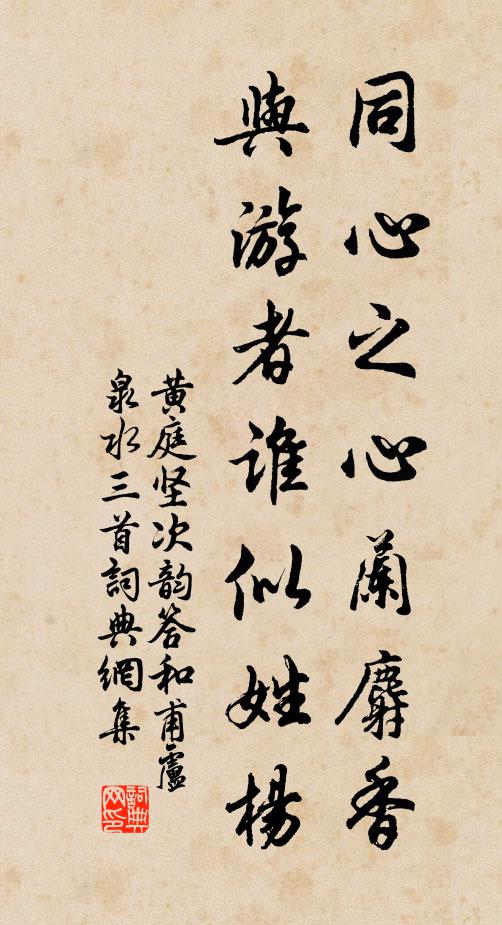 同心之心蘭麝香
與游者誰似姓楊
黄庭坚次韵答和甫盧
泉水三首詞典網集
詞典网印